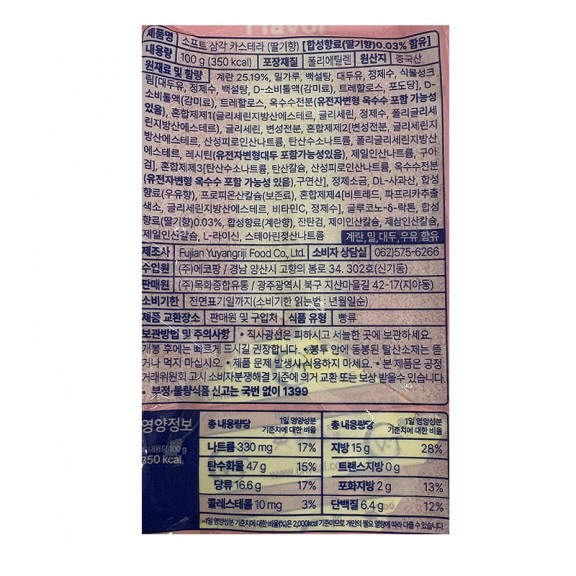 Flavor
제품명 소프트 삼각 카스테라 (딸기향) [합성향료(딸기향)0.03% 함유]
내용량 100 g (350 kcal) 포장재질 폴리에틸렌 원산지 중국산
원재료 및 함량 계란 25.19%, 밀가루, 백설탕, 대두유, 정제수, 식물성크
림[대두유, 정제수, 백설탕, D-소비톨액(감미료), 트레할로스, 포도당], D-
소비톨액(감미료), 트레할로스, 옥수수전분(유전자변형 옥수수 포함 가능성
있음), 혼합제제1(글리세린지방산에스테르, 글리세린, 정제수, 폴리글리세
린지방산에스테르), 글리세린, 변성전분, 혼합제제2[변성전분, 글리세린지
방산에스테르, 산성피로인산나트륨, 탄산수소나트륨, 폴리글리세린지방산
에스테르, 레시틴(유전자변형대두 포함가능성있음), 제일인산나트륨, 구아
검], 혼합제제3[탄산수소나트륨, 탄산칼슘, 산성피로인산나트륨, 옥수수전분
(유전자변형 옥수수 포함 가능성 있음), 구연산], 정제소금, DL-사과산, 합성
향료(우유향), 프로피온산칼슘(보존료), 혼합제제4[비트레드, 파프리카추출
색소, 글리세린지방산에스테르, 비타민C, 정제수], 글루코노-δ-락톤, 합성
향료(딸기향)0.03%, 합성향료(계란향), 잔탄검, 제이인산칼슘, 제삼인산칼슘,
제일인산칼슘, L-라이신, 스테아린젖산나트륨 계란, 밀, 대두, 우유 함유
제조사 Fujian Yuyangriji Food Co., Ltd. 소비자 상담실 062)575-6266
수입원 (주)에코팜 / 경남 양산시 고향의 봄로 34. 302호(신기동)
판매원 (주)목화종합유통 / 광주광역시 북구 지산마을길 42-17(지야동)
소비기한 전면표기일까지(소비기한 읽는법 : 년월일순)
제품 교환장소 판매원 및 구입처 식품 유형 빵류
보관방법 및 주의사항 • 직사광선은 피하시고 서늘한 곳에 보관하세요.
개봉 후에는 빠르게 드시길 권장합니다. • 봉투 안에 동봉된 탈산소제는 뜯
거나 먹지 마십시오. • 제품 문제 발생시 식용하지 마세요. • 본 제품은 공정
거래위원회 고시 소비자분쟁해결 기준에 의거 교환 또는 보상 받을수 있습니다.
• 부정·불량식품 신고는 국번 없이 1399
영양정보 총 내용량당 1일 영양성분 기준치에 대한 비율 총 내용량당 1일 영양성분 기준치에 대한 비율
총 내용량 100 g
350 kcal
나트륨 330 mg 17% 지방 15 g 28%
탄수화물 47 g 15% 트랜스지방 0 g
당류 16.6 g 17% 포화지방 2 g 13%
콜레스테롤 10 mg 3% 단백질 6.4 g 12%
1일 영양성분 기준치에 대한 비율(%)은 2,000kcal 기준이므로 개인의 필요 열량에 따라 다를 수 있습니다.